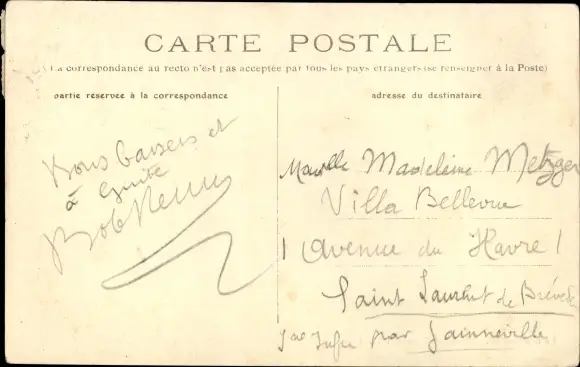 CARTE POSTALE
(La correspondance au recto n'est pas acceptée par tous les pays étrangers (se renseigner à la Poste)
partie réservée à la correspondance
adresse du destinataire
Bons baisers et
à
Bob
Madelaine Metzger
Villa Bellevue
(Avenue du Havre)
Saint Laurent de Brévedent
par Gainneville